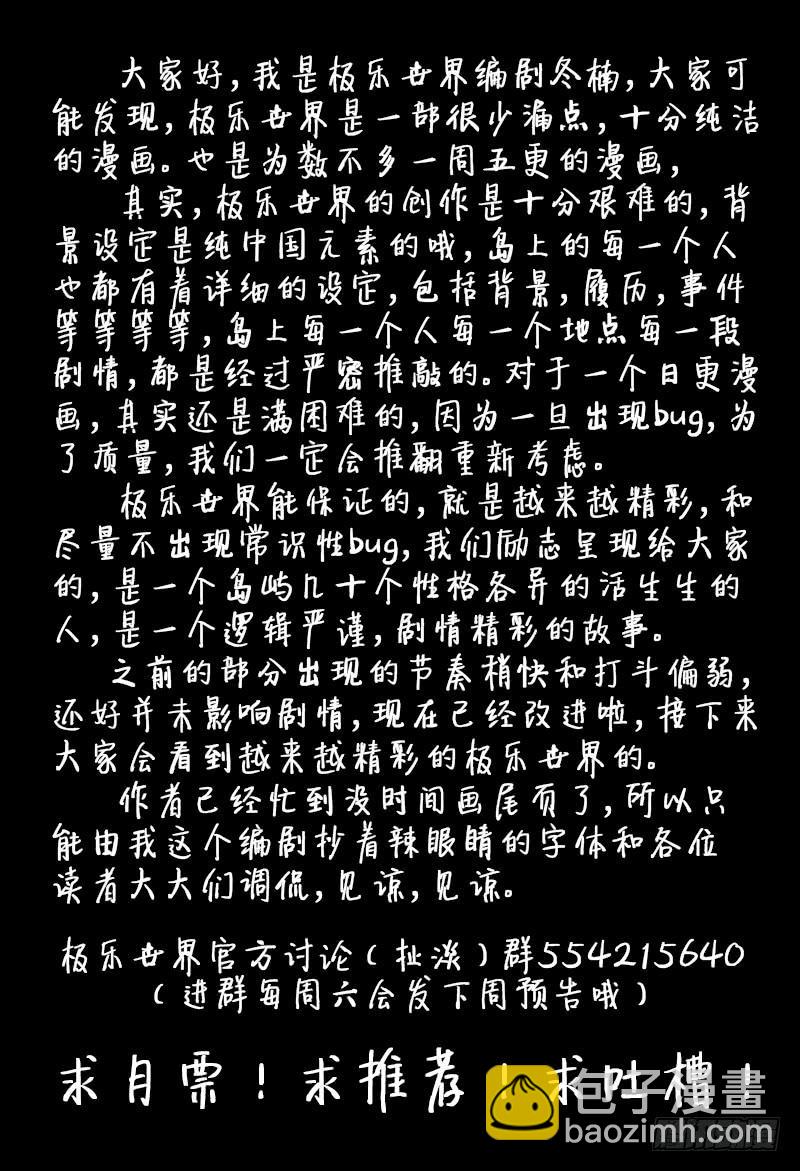 大家好，我是极乐世界编剧冬楠，大家可
能发现，极乐世界是一部很少漏点，十分纯洁
的漫画。也是为数不多一周五更的漫画，
其实，极乐世界的创作是十分艰难的，背
景设定是纯中国元素的哦，岛上的每一个人
也都有着详细的设定，包括背景，履历，事件
等等等等，岛上每一个人每一个地点每一段
剧情，都是经过严密推敲的。对于一个日更漫
画，其实还是满困难的，因为一旦出现bug，为
了质量，我们一定会推翻重新考虑。
极乐世界能保证的，就是越来越精彩，和
尽量不出现常识性bug，我们励志呈现给大家
的，是一个岛屿几十个性格各异的活生生的
人，是一个逻辑严谨，剧情精彩的故事。
之前的部分出现的节奏稍快和打斗偏弱，
还好并未影响剧情，现在已经改进啦，接下来
大家会看到越来越精彩的极乐世界的。
作者已经忙到没时间画尾页了，所以只
能由我这个编剧抄着辣眼睛的字体和各位
读者大大们调侃，见谅，见谅。
极乐世界官方讨论（扯淡）群554215640
（进群每周六会发下周预告哦）
求月票！求推荐！求吐槽！
包子漫畫
baozimh.com